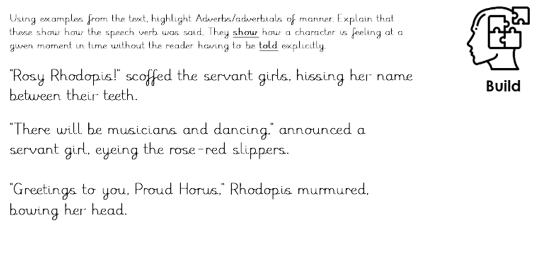 Using examples from the text, highlight Adverbs/adverbials of manner. Explain that
these show how the speech verb was said. They show how a character is feeling at a
given moment in time without the reader having to be told explicitly.
"Rosy Rhodopis!" scoffed the servant girls, hissing her name
between their teeth.
"There will be musicians and dancing," announced a
servant girl, eyeing the rose-red slippers.
"Greetings to you, Proud Horus," Rhodopis murmured,
bowing her head.
Build